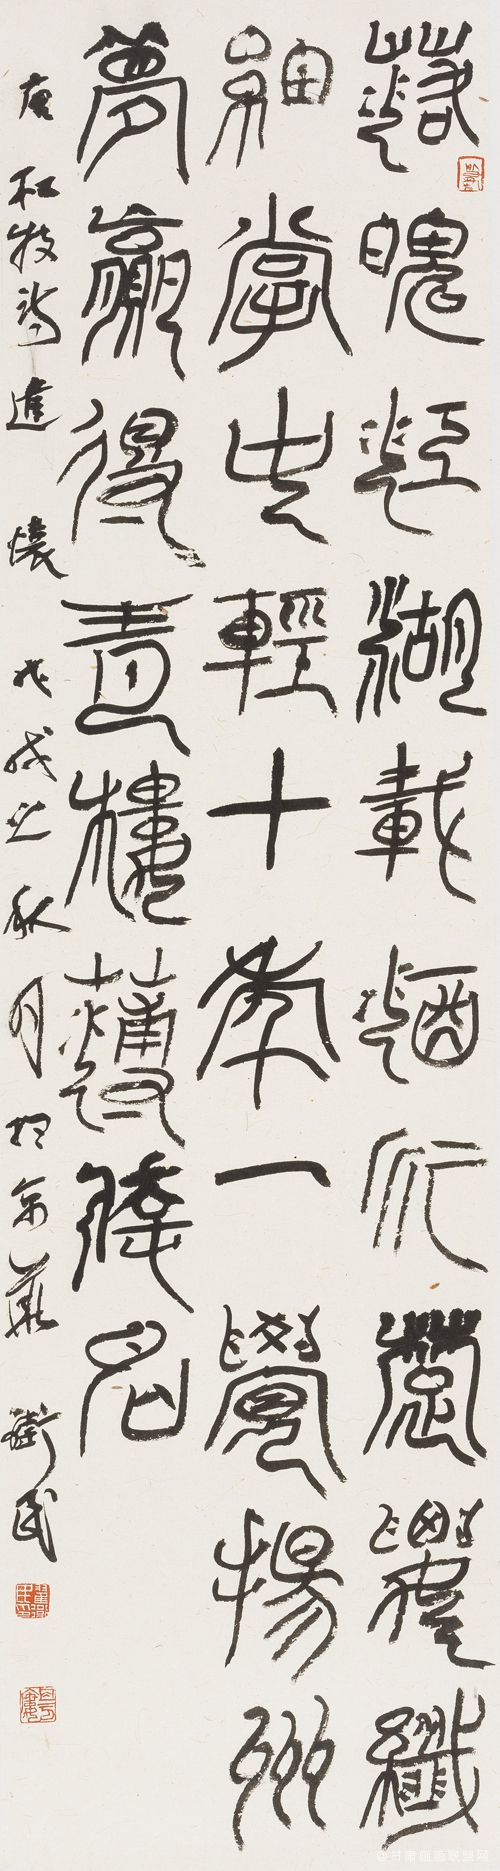 落魄江湖載酒行楚腰纖
細掌中輕十年一覺揚州
夢贏得青樓薄倖名
唐杜牧詩遣懷 戊戌之秋月於京華 衛民